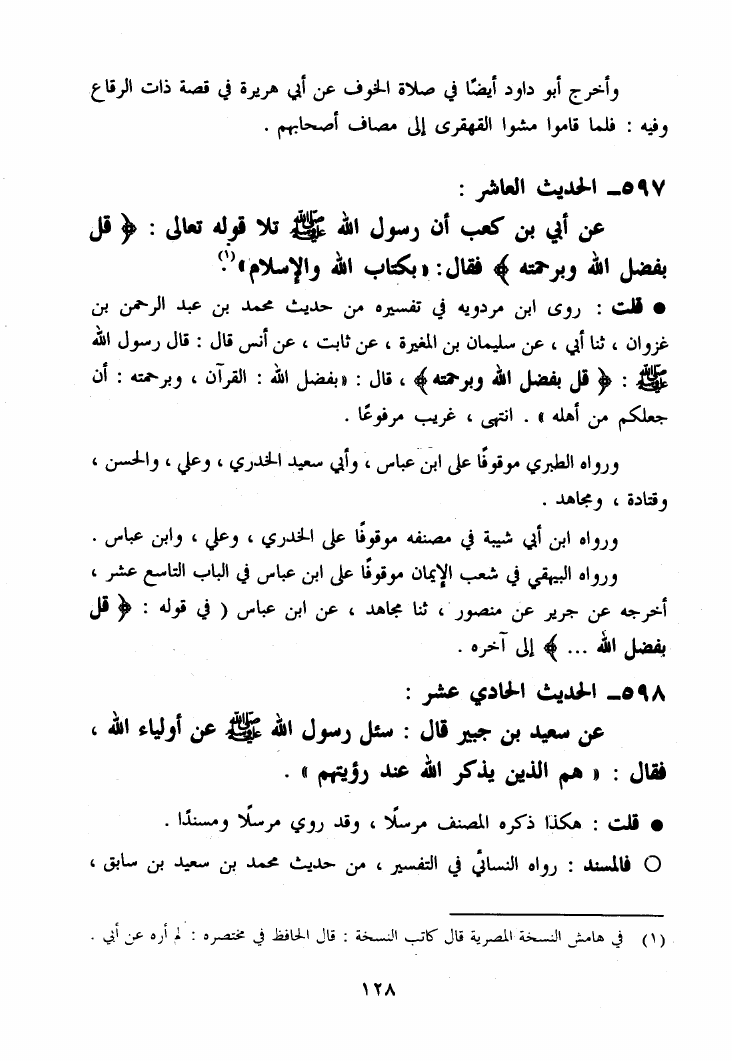 وأخرج أبو داود أيضًا في صلاة الخوف عن أبي هريرة في قصة ذات الرقاع
وفيه : فلما قاموا مشوا القهقرى إلى مصاف أصحابهم .
٥٩٧ـ الحديث العاشر :
عن أبي بن كعب أن رسول الله ﷺ تلا قوله تعالى : ﴿ قل
بفضل الله وبرحمته ﴾ فقال: «بكتاب الله والإسلام»(١).
● قلت : روى ابن مردويه في تفسيره من حديث محمد بن عبد الرحمن بن
غزوان ، ثنا أبي ، عن سليمان بن المغيرة ، عن ثابت ، عن أنس قال : قال رسول الله
ﷺ : ﴿ قل بفضل الله وبرحمته ﴾ ، قال : «بفضل الله : القرآن ، وبرحمته : أن
جعلكم من أهله» . انتهى ، غريب مرفوعًا .
ورواه الطبري موقوفًا على ابن عباس ، وأبي سعيد الخدري ، وعلي ، والحسن ،
وقتادة ، ومجاهد .
ورواه ابن أبي شيبة في مصنفه موقوفًا على الخدري ، وعلي ، وابن عباس .
ورواه البيهقي في شعب الإيمان موقوفًا على ابن عباس في الباب التاسع عشر ،
أخرجه عن جرير عن منصور ، ثنا مجاهد ، عن ابن عباس ( في قوله : ﴿ قل
بفضل الله ... ﴾ إلى آخره .
٥٩٨ـ الحديث الحادي عشر :
عن سعيد بن جبير قال : سئل رسول الله ﷺ عن أولياء الله ،
فقال : « هم الذين يذكر الله عند رؤيتهم » .
● قلت : هكذا ذكره المصنف مرسلًا ، وقد روي مرسلًا ومسندًا .
○ فالمسند : رواه النسائي في التفسير ، من حديث محمد بن سعيد بن سابق ،
(١) في هامش النسخة المصرية قال كاتب النسخة : قال الحافظ في مختصره : لم أره عن أبي .
١٢٨